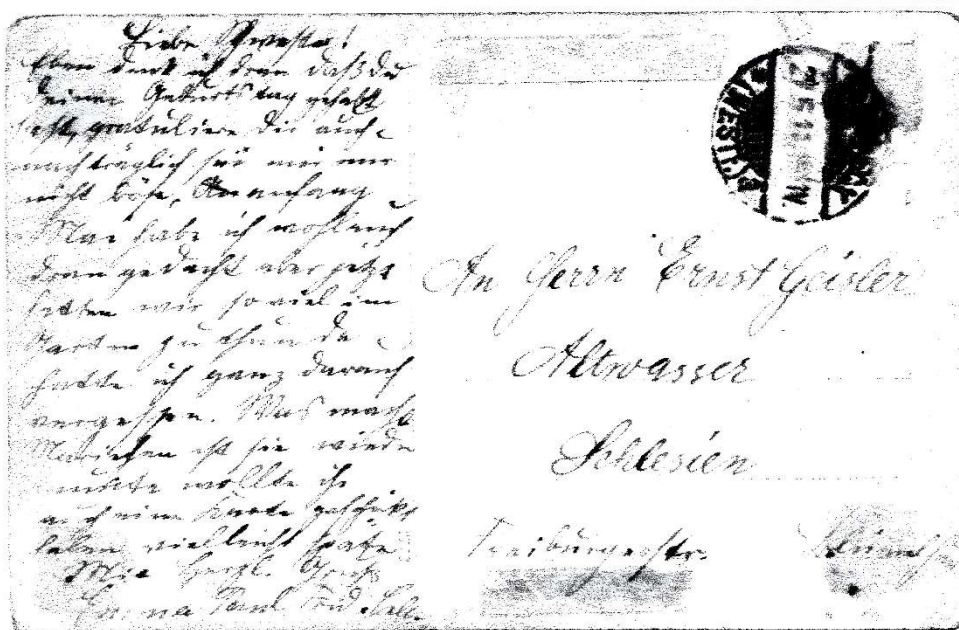 Liebe Schwester!
Eben denk ich dran daß du
deinen Geburtstag gehabt
hast, gratuliere dir auch
nachträglich sei mir nur
nicht böse, Am anfang
Mai habe ich wohl auch
dran gedacht aber jetzt
hatten wir so viel im
Garten zu thun da
hatte ich ganz darauf
vergessen. Was macht
Mariechen ist sie wieder
wollte ihr
auch eine Karte geschickt
haben vielleicht später
Mit herzl. Gruß
Paul
(WESTF.)
An Herrn Ernst Geisler
Altwasser
Schlesien
Freiburgerstr.